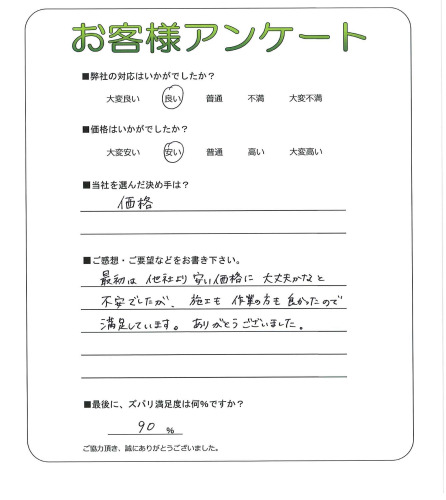 お客様アンケート
■弊社の対応はいかがでしたか？
大変良い 良い 普通 不満 大変不満
■価格はいかがでしたか？
大変安い 安い 普通 高い 大変高い
■当社を選んだ決め手は？
価格
■ご感想・ご要望などをお書き下さい。
最初は 他社より 安い価格に 大丈夫かなと
不安でしたが、施工も 作業の方も 良かったので
満足しています。ありがとうございました。
■最後に、ズバリ満足度は何％ですか？
90 ％
ご協力頂き、誠にありがとうございました。